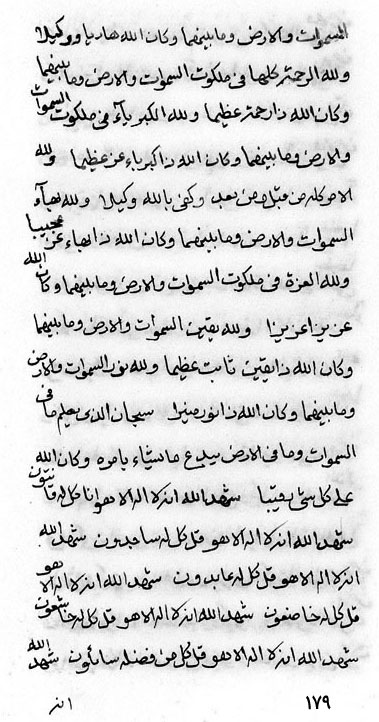 السموات والارض وما بينهما وكان الله هاديا ووكيلا
ولله الرحمة كلها في ملكوت السموات والارض وما بينهما
وكان الله ذا رحمة عظيما ولله الكبرياء في ملكوت السموات
والارض وما بينهما وكان الله ذا كبرياء عن عظيما ولله
الامر كله من قبل ومن بعد وكفى بالله وكيلا ولله بهاء
السموات والارض وما بينهما وكان الله ذا بهاء عن عجيبا
ولله العزة في ملكوت السموات والارض وما بينهما وكان الله
عزيزا عزيزا ولله يقين السموات والارض وما بينهما
وكان الله ذا يقين ثابت عظيما ولله نور السموات والارض
وما بينهما وكان الله ذا نور منيرا سبحان الذي يعلم ما في
السموات وما في الارض يبدع ما يشاء بامره وكان الله
على كل شئ رقيبا شهد الله انه لا اله الا هو انا كل له قانتون
شهد الله انه لا اله الا هو قل كل له ساجدون شهد الله
انه لا اله الا هو قل كل له عابدون شهد الله انه لا اله الا هو
قل كل له خاضعون شهد الله انه لا اله الا هو قل كل له خاشعون
شهد الله انه لا اله الا هو قل كل من فضله سائلون شهد الله
١٧٩ انه